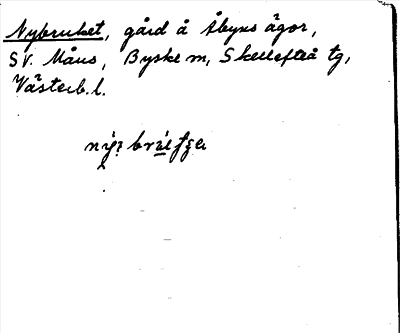 Nybruket, gård å Åbyns ägor,
SV. Måns, Byske sn, Skellefteå tg,
Västerb. l.